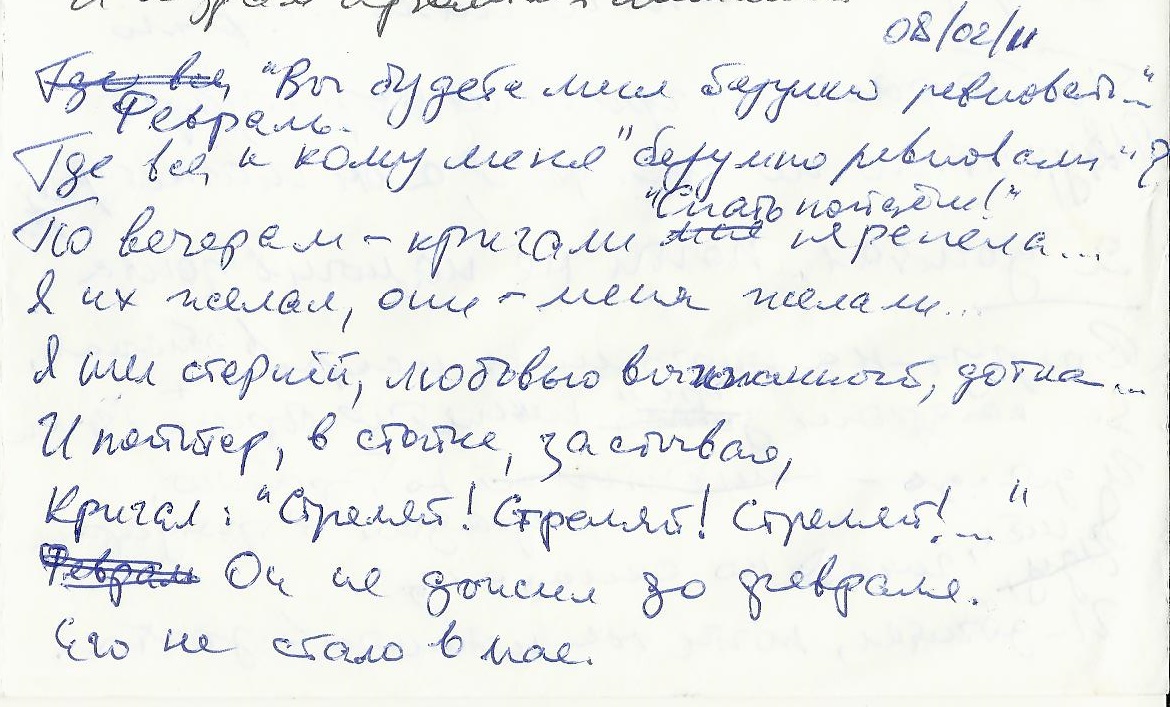 08/02/11
Где все "Вы будете меня безумно ревновать..."
Февраль.
Где все, к кому меня "безумно ревновали"?
"Спать пойдём!"
По вечерам – кричали мне перепела...
Я их желал, они – меня желали...
Я шёл стернёй, любовью выжженной, дотла...
И пойнтер, в стойке, застывая,
Кричал: "Стреляй! Стреляй! Стреляй!..."
Февраль Он не дожил до февраля.
Его не стало в мае.